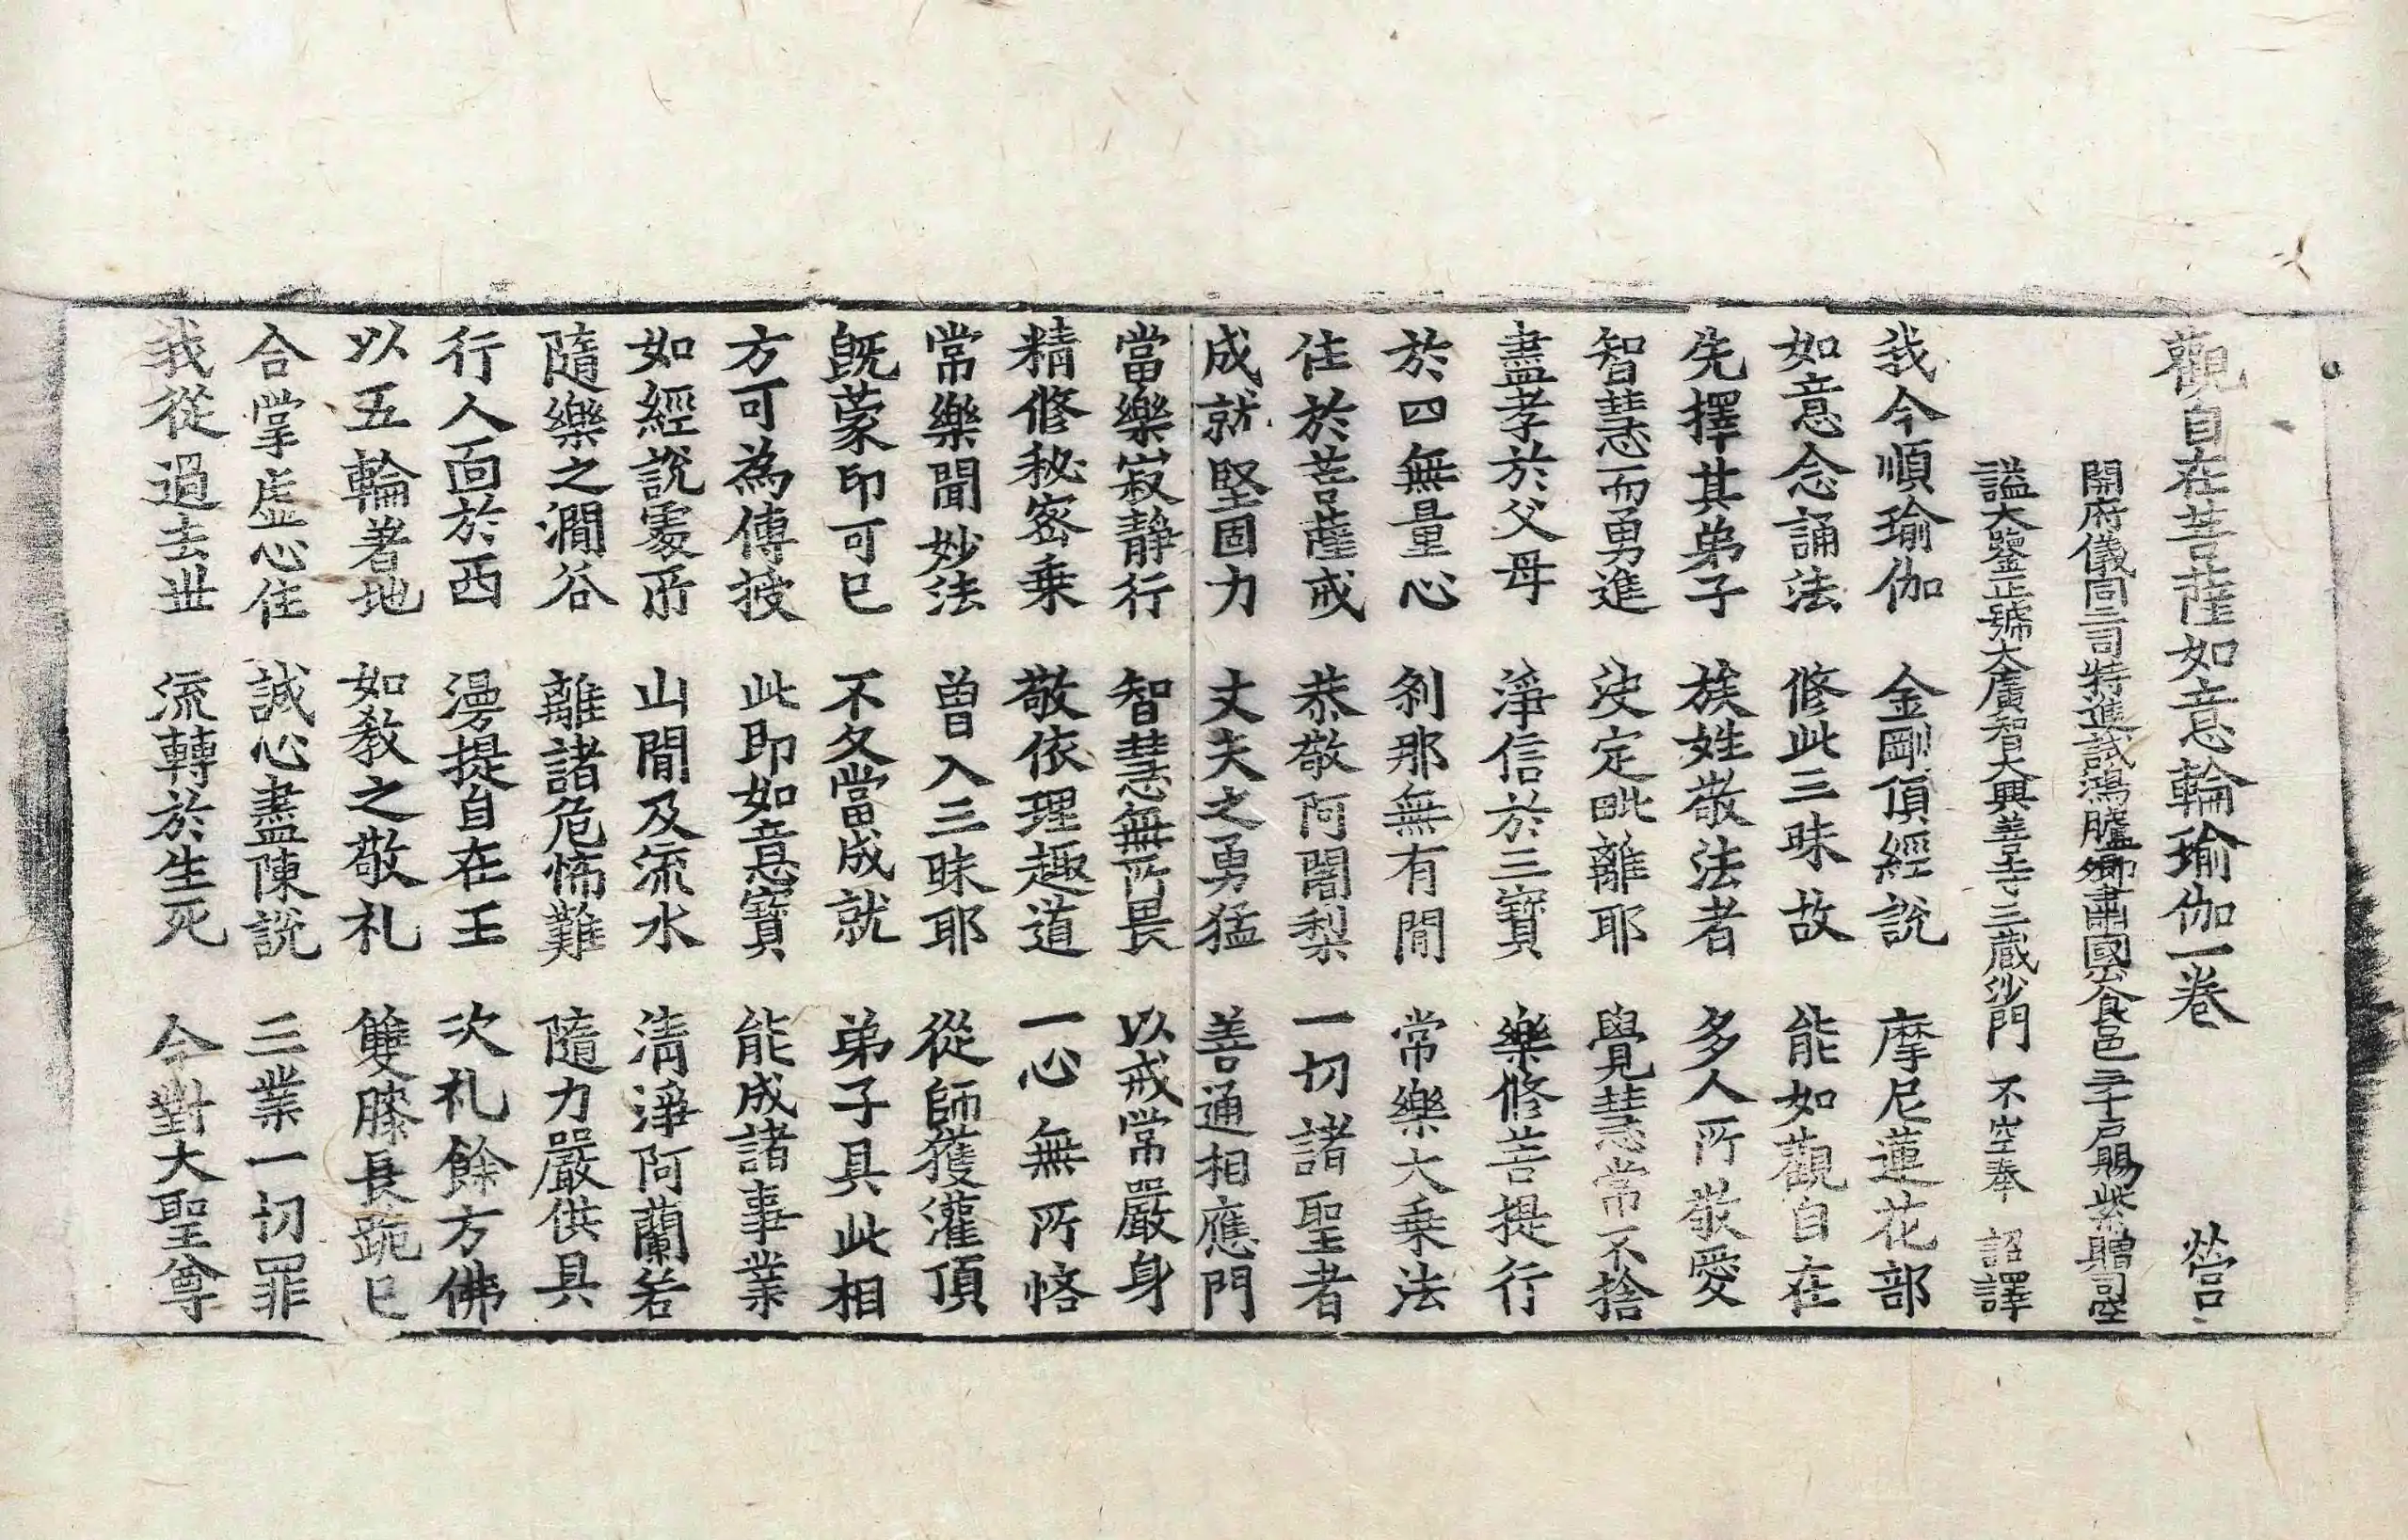 觀自在菩薩如意輪瑜伽一卷 營
開府儀同三司特進試鴻臚卿肅國公食邑三千戶賜紫贈司空
謚大鑒正號大廣智大興善寺三藏沙門 不空奉 詔譯
我今順瑜伽 金剛頂經說 摩尼蓮花部
如意念誦法 修此三昧故 能如觀自在
先擇其弟子 族姓敬法者 多人所敬愛
智慧而勇進 決定毗離耶 覺慧常不捨
盡孝於父母 淨信於三寶 樂修菩提行
於四無量心 剎那無有間 常樂大乘法
住於菩薩戒 恭敬阿闍梨 一切諸聖者
成就堅固力 丈夫之勇猛 善通相應門
當樂寂靜行 智慧無所畏 以戒常嚴身
精修秘密乗 敬依理趣道 一心無所悋
常樂聞妙法 曾入三昧耶 從師獲灌頂
旣蒙印可已 不久當成就 弟子具此相
方可為傳授 此即如意寶 能成諸事業
如經說處所 山間及流水 淸淨阿蘭若
隨樂之澗谷 離諸危怖難 隨力嚴供具
行人面於西 禮提自在王 次礼餘方佛
以五輪著地 如敎之敬礼 雙膝長跪已
合掌虛心住 誠心盡陳說 三業一切罪
我從過去世 流轉於生死 今對大聖尊